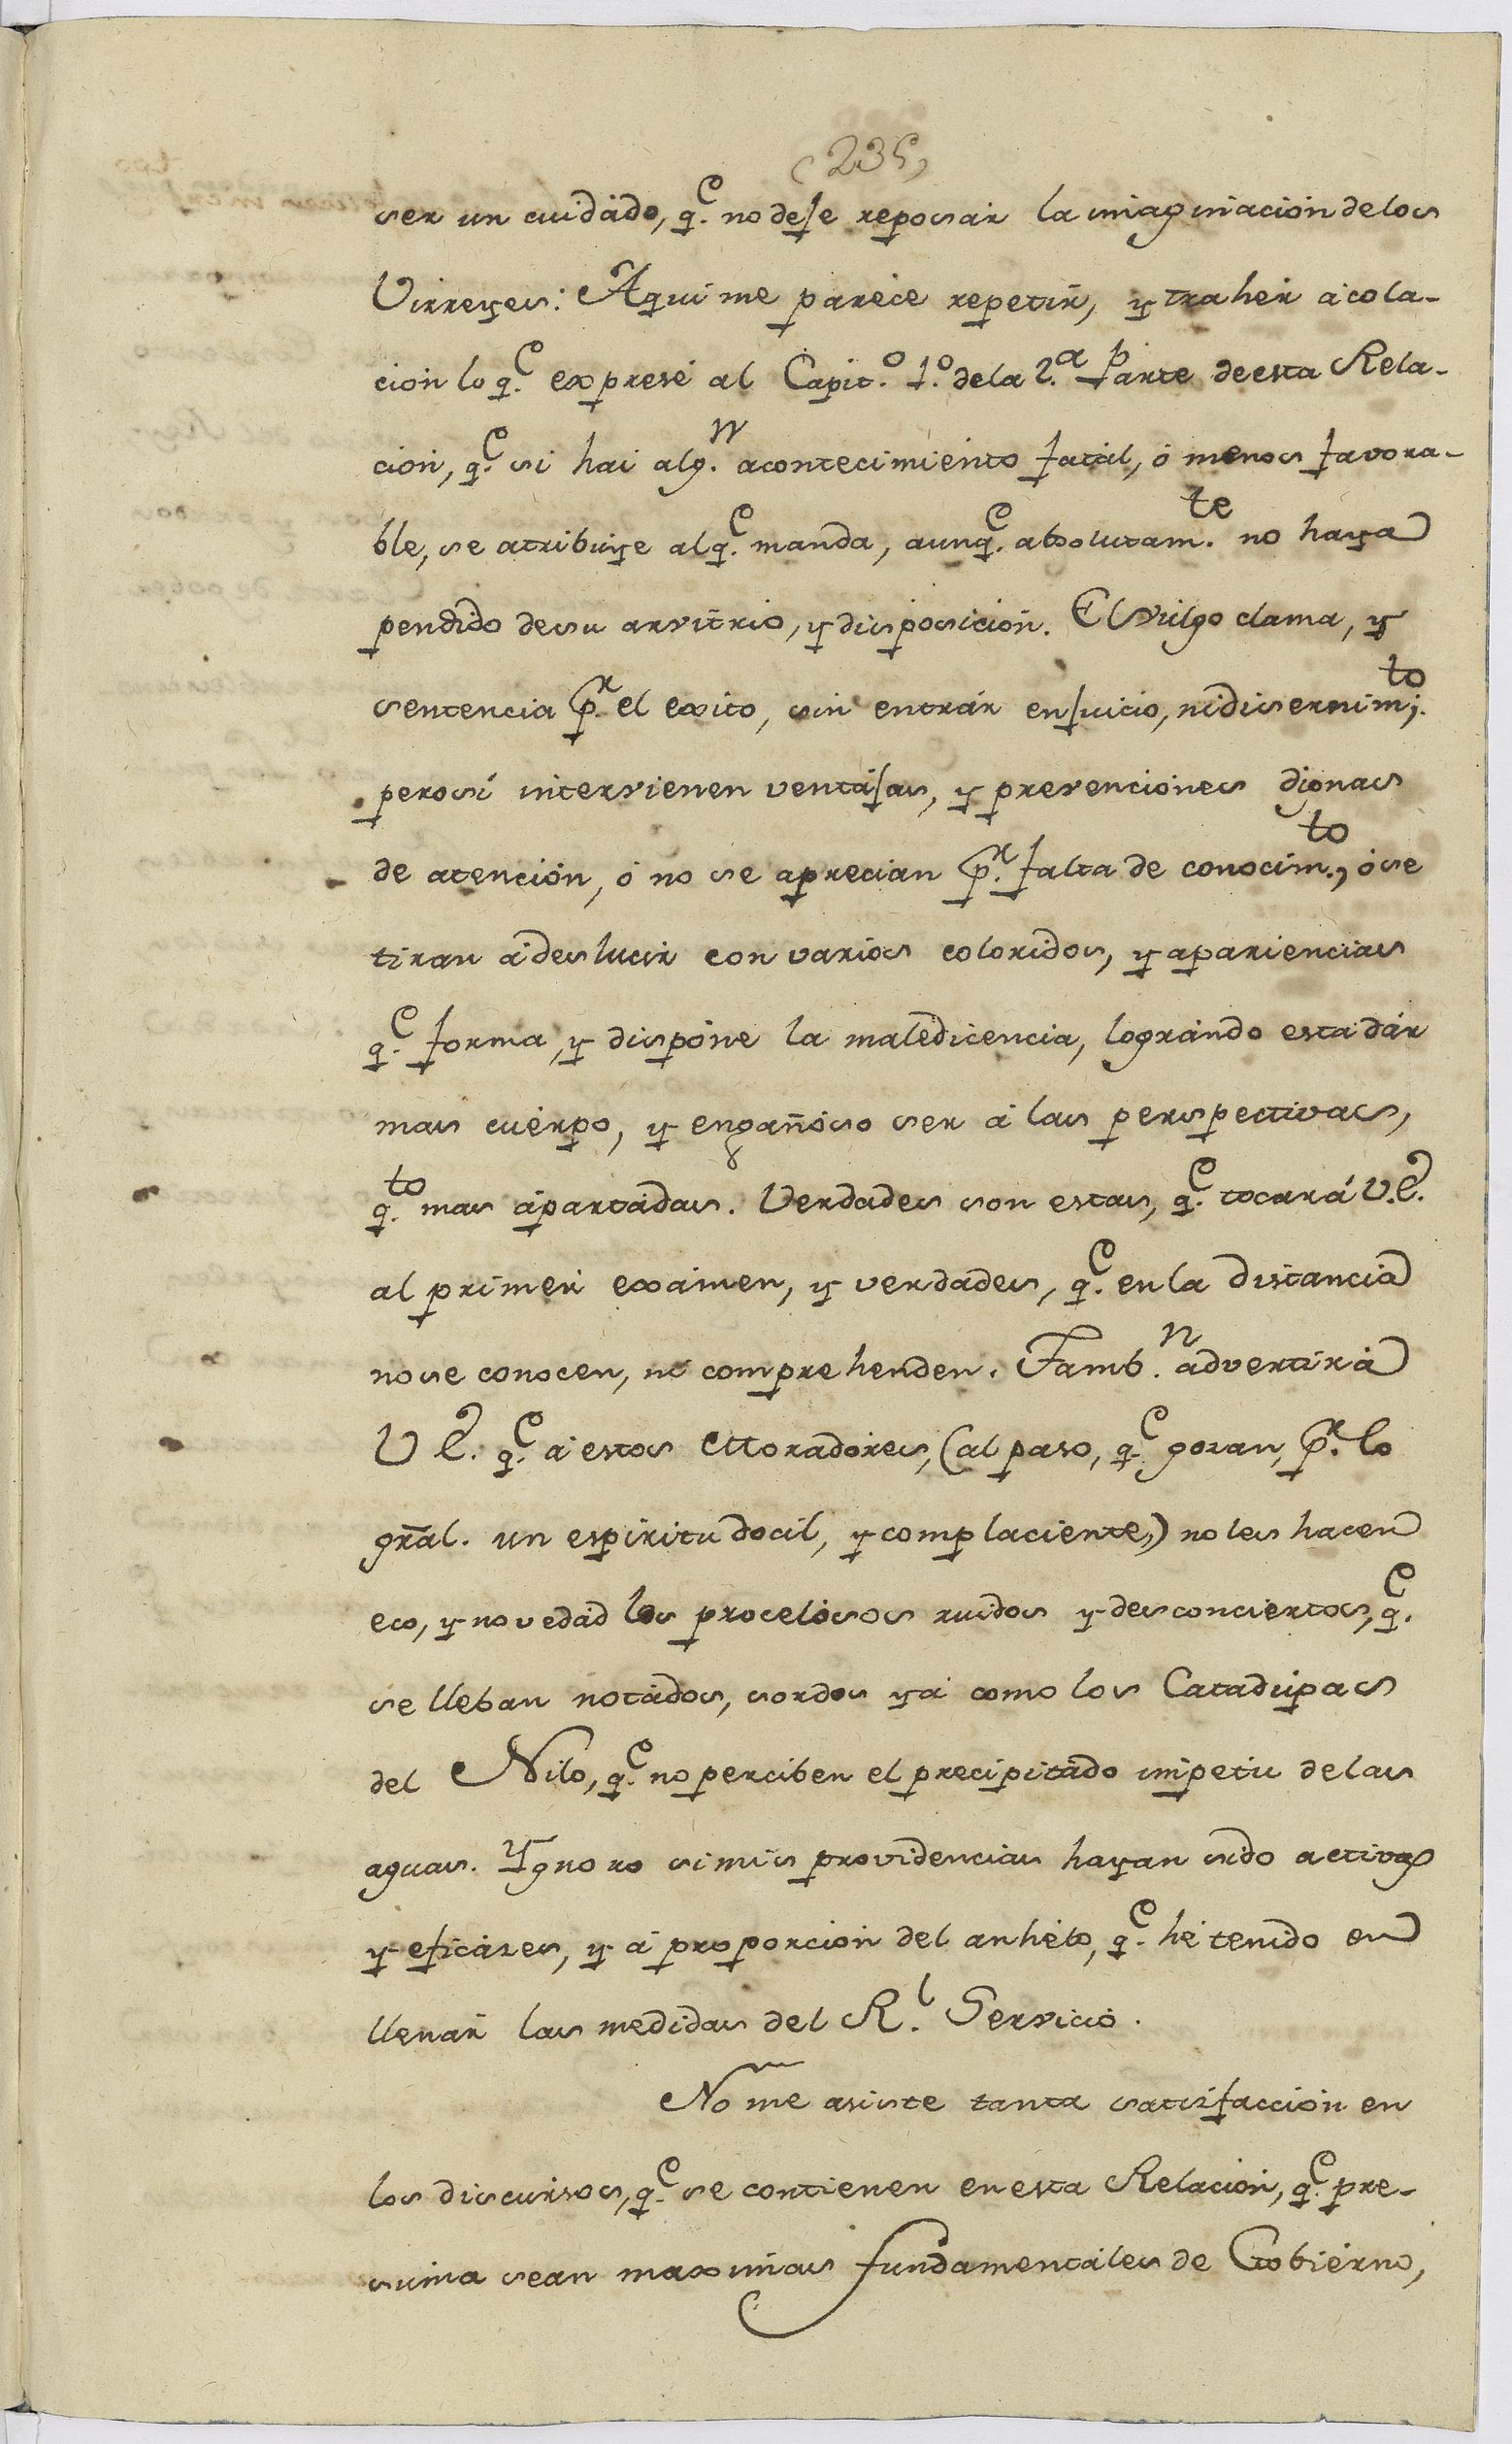 (235)
ser un cuidádo, q.e no deje reposár la imaginación de los
Virreyes: Aqui me paréce repetir, y traher á cola-
cion lo q.e expresé al Capit.o 1.o de la 2.a Parte de esta Rela-
cion, q.e si hai alg.n acontecimiento fatál, ó menos favora-
ble, se atribuye al q.e manda, aunq.e absolutam.te no haya
pendido de su arvitrio, y disposición. El vulgo clama, y
sentencia p.r el exito, sin entrár en juicio, ni disernim.to;
pero si intervienen ventájas, y prevenciones dignas
de atención, ó no se aprecian p.r falta de conocim.to, ó se
tiran á deslucir con varios coloridos, y apariencias
q.e forma, y dispóne la maledicencia, lográndo esta dár
mas cuérpo, y engañóso ser á las perspectivas,
q.to mas apartádas. Verdades son estas, q.e tocará V.E.
al primér exámen, y verdades, q.e en la distancia
no se conocen, ni comprehenden. Tamb.n advertirá
V E. q.e á estos Moradóres, (al paso, q.e gozan, p.r lo
grãl. un espiritu docil, y complaciente,) no les hacen
eco, y novedad los procelósos ruidos y desconciertos, q.e
se lleban notádos, sordos yá como los Catadúpas
del Nilo, q.e no perciben el precipitádo impetu de las
aguas. Ygnoro si mis providencias hayan sido activas
y eficázes, y á proporcion del anhélo, q.e hé tenido en
llenár las medidas del R.l Servicio.
No me asiste tanta satisfacción en
los discursos, q.e se contienen en esta Relación, q.e pre-
suma sean maximas fundamentáles de Gobiérno,